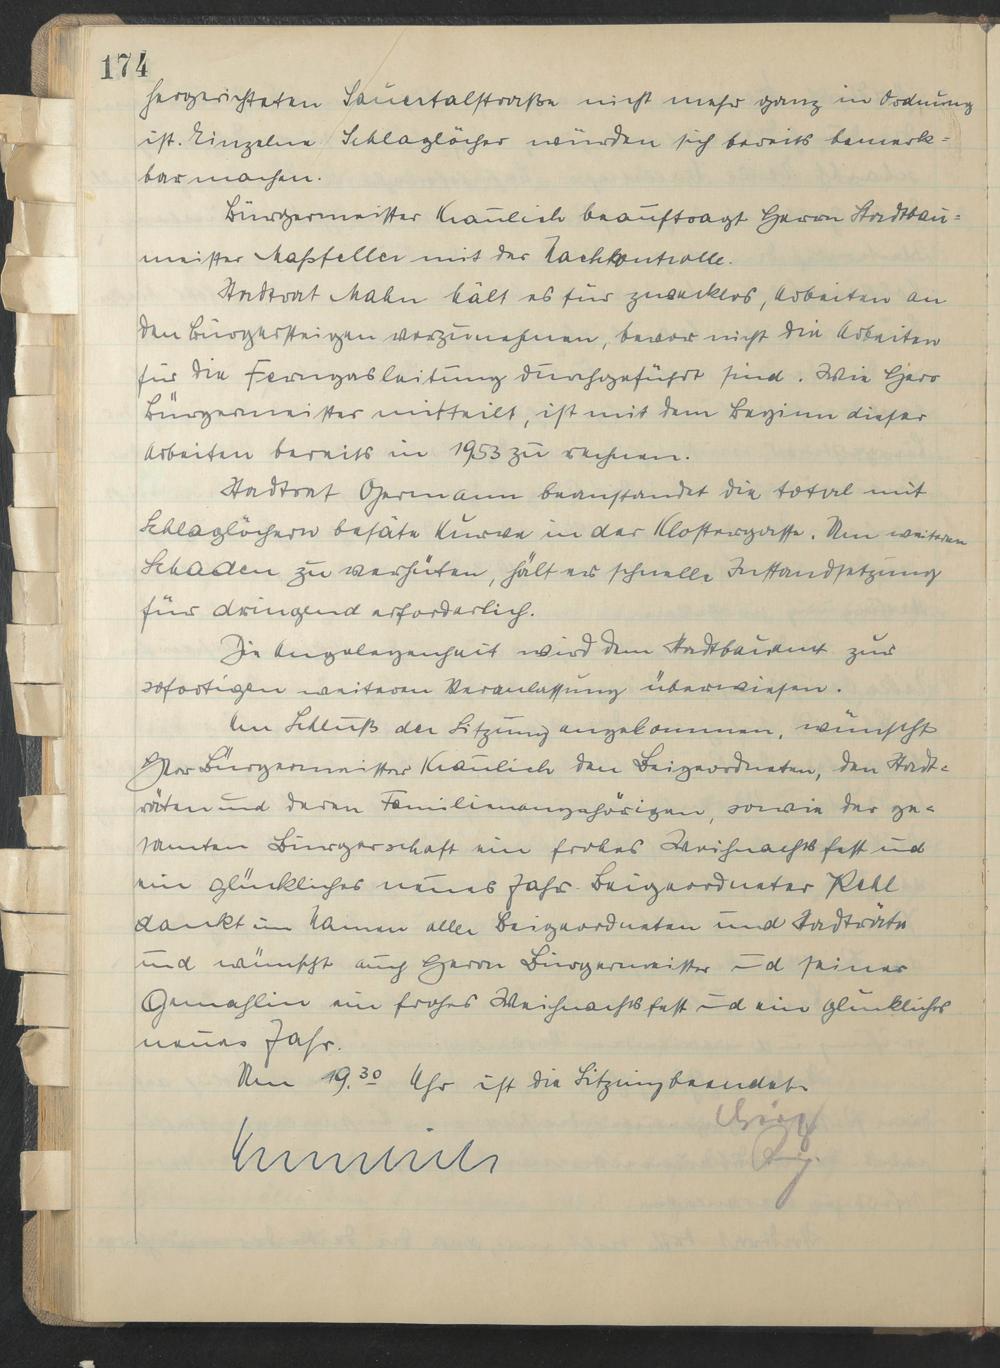 174
hergerichteten Sauertalstraße nicht mehr ganz in Ordnung
ist. Einzelne Schlaglöcher würden sich bereits bemerk=
bar machen.
Bürgermeister Kraulich beauftragt Herrn Stadtbau=
meister Maßfeller mit der Nachkontrolle.
Stadtrat Mahn hält es für zwecklos, Arbeiten an
den Bürgersteigen vorzunehmen, bevor nicht die Arbeiten
für die Ferngasleitung durchgeführt sind. Wie Herr
Bürgermeister mitteilt, ist mit dem Beginn dieser
Arbeiten bereits in 1953 zu rechnen.
Stadtrat Germann beanstandet die total mit
Schlaglöchern besäte Kurve in der Klostergasse. Um weiteren
Schaden zu verhüten, hält er schnelle Instandsetzung
für dringend erforderlich.
Die Angelegenheit wird dem Stadtbauamt zur
sofortigen weiteren Veranlassung überwiesen.
Am Schluß der Sitzung angekommen, wünscht
Herr Bürgermeister Kraulich den Beigeordneten, den Stadt=
räten und deren Familienangehörigen, sowie der ge=
samten Bürgerschaft ein frohes Weihnachtsfest und
ein glückliches neues Jahr. Beigeordneter Kehl
dankt im Namen aller Beigeordneten und Stadträte
und wünscht auch Herrn Bürgermeister und seiner
Gemahlin ein frohes Weihnachtsfest und ein glückliches
neues Jahr.
Um 19.30 Uhr ist die Sitzung beendet.